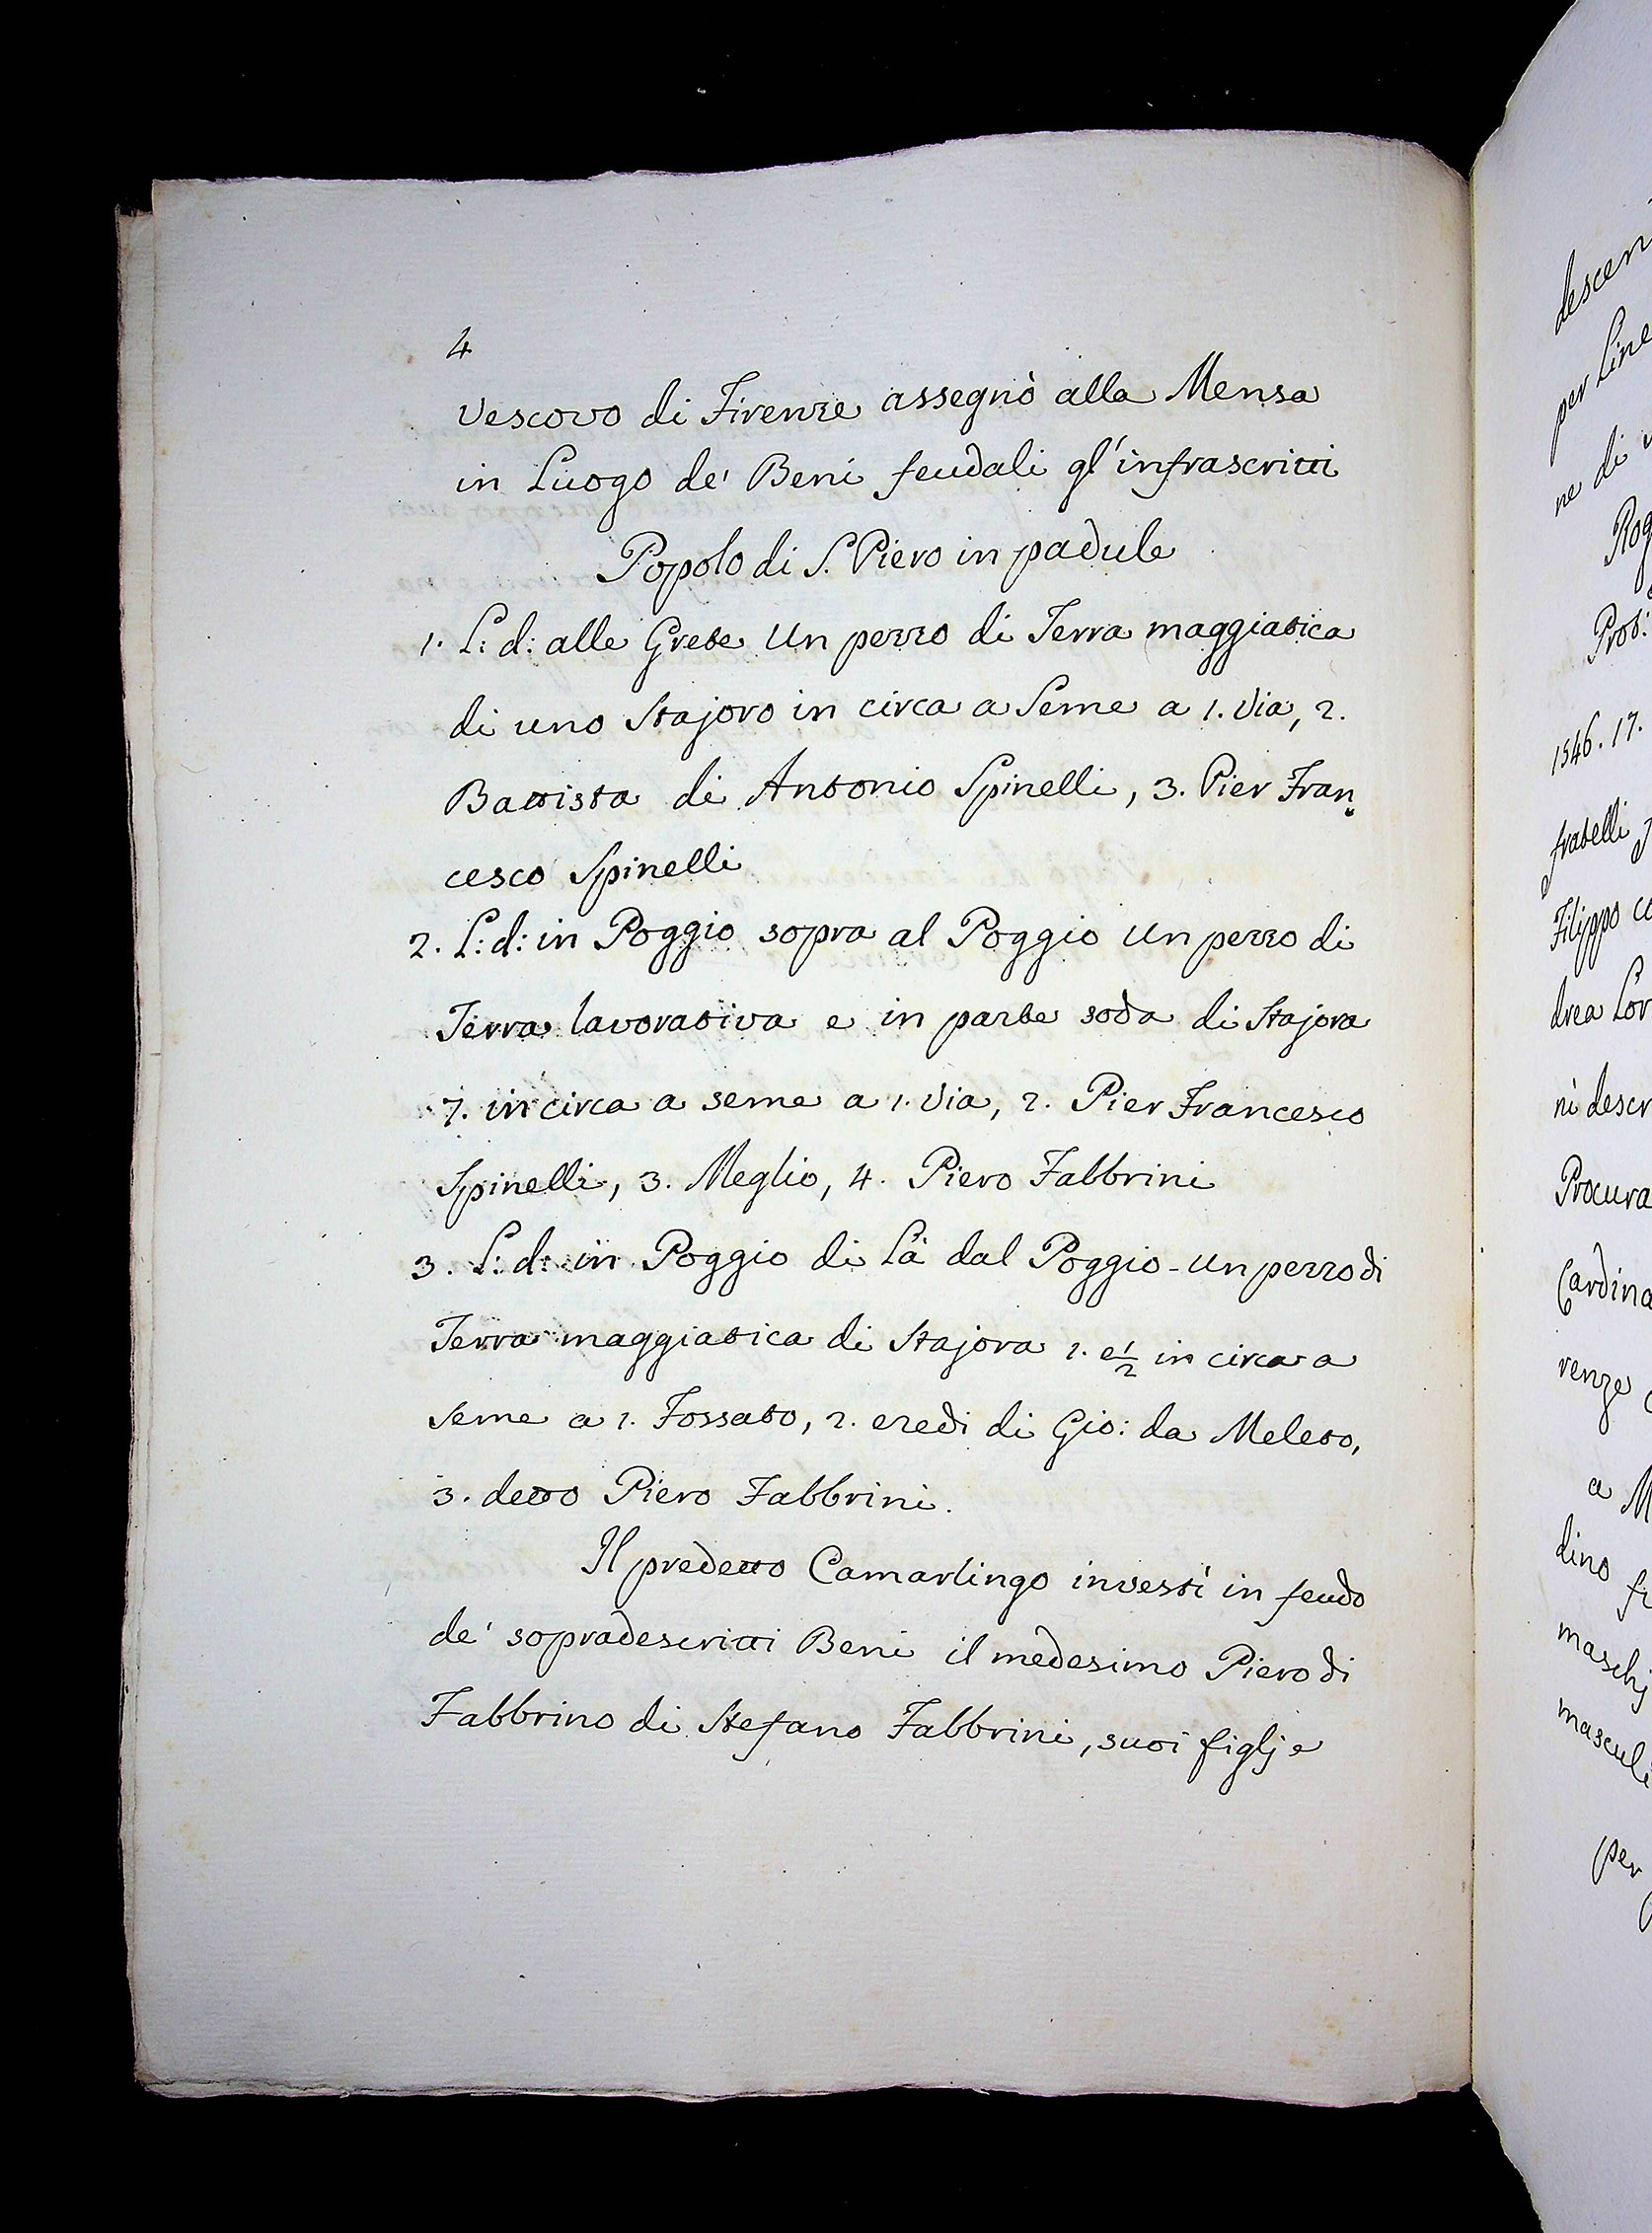 4
Vescovo di Firenze assegnò alla Mensa
in Luogo de' Beni feudali gl'infrascritti
Popolo di S. Piero in padule
1. L: d: alle Grete Un pezzo di Terra maggiatica
di uno Stajoro in circa a Seme a 1. Via, 2.
Battista di Antonio Spinelli, 3. Pier Fran
cesco Spinelli
2. L: d: in Poggio sopra al Poggio Un pezzo di
Terra lavorativa e in parte soda di Stajora
7. in circa a seme a 1. Via, 2. Pier Francesco
Spinelli, 3. Meglio, 4. Piero Fabbrini
3. L: d: in Poggio di Là dal Poggio - Un pezzo di
Terra maggiatica di Stajora 2. e 1/2 in circa a
Seme a 1. Fossato, 2. eredi di Gio: da Meleto,
3. detto Piero Fabbrini.
Il predetto Camarlingo investì in feudo
de' sopradescritti Beni il medesimo Piero di
Fabbrino di Stefano Fabbrini, suoi figlj e
descen
per Line
ne di
Rog
Prot:
1546. 17.
fratelli
Filippo co
drea Lor
ni descr
Procura
Cardina
renze
a M
dino
maschj
masculi
per